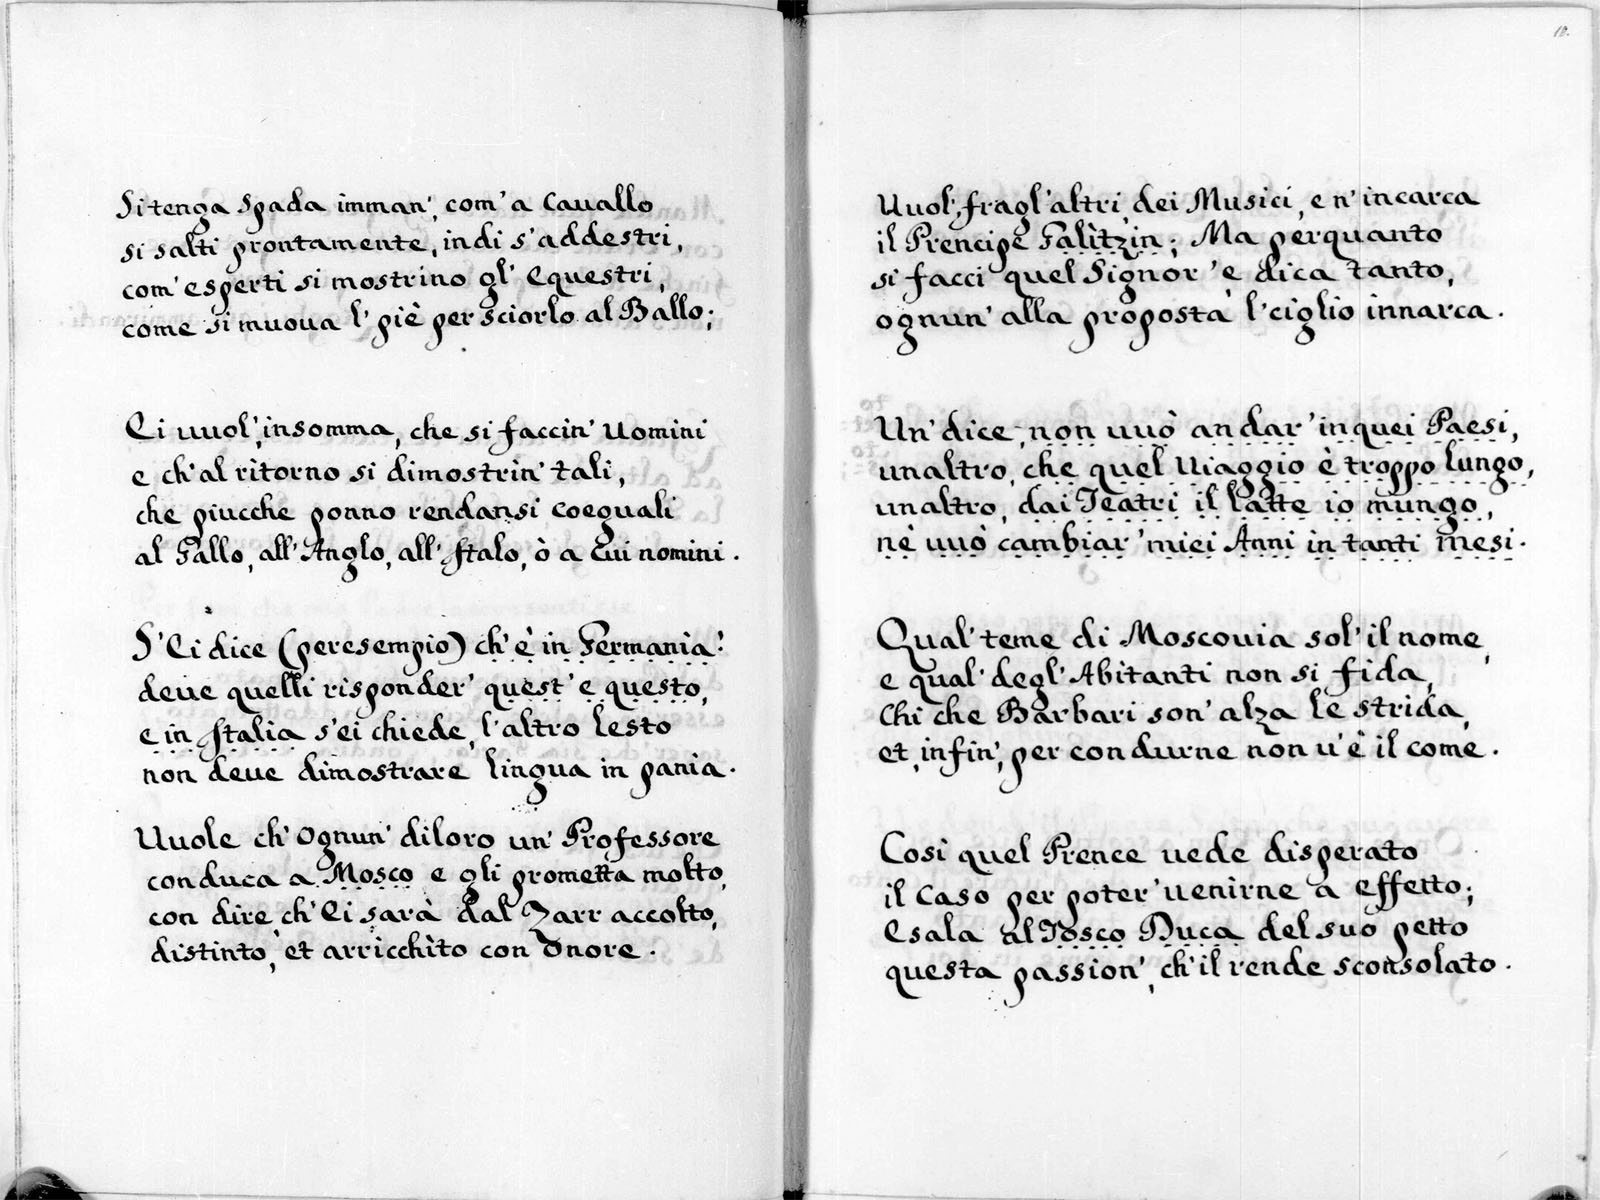 Si tenga Spada imman', com' a Cauallo
si salti prontamente, indi s'addestri,
com' esperti si mostrino gl' Equestri,
come si muoua l' piè per sciorlo al Ballo;
Ei uuol', insomma, che si faccin' Uomini
e ch' al rìtorno si dimostrin' tali,
che piucche ponno rendansi coequali
al Gallo, all' Anglo, all' Italo, ò a Cui nomini.
S' Ei dice (peresempio) ch' è in Germanìa:
deue quelli risponder' quest' e questo,
e in Italia s'ei chiede, l'altro lesto
non deue dimostrare lingua in pania.
Uuole ch' ognun' diloro un' Professore
conduca a Mosco e gli prometta molto,
con dire ch' Ei sarà dal Zarr accolto,
distinto, et arricchìto con Onore.
12.
Uuol', fragl' altri, dei Musici, e n' incarca
il Prencipe Galìtzin; Ma perquanto
si facci quel Signor' e dica tanto,
ognun' alla proposta l'ciglio innarca.
Un' dice, non uuò andar' inquei Paesi,
unaltro, che quel Uiaggio è troppo lungo,
unaltro, dai Teatri il latte io mungo,
nè uuò cambiar' miei Anni in tanti mesi.
Qual' teme di Moscouia sol' il nome,
e qual' degl' Abitanti non si fida,
Chi che Barbari son' alza le strida,
et, infin', per condurne non u'è il come.
Così quel Prence uede disperato
il Caso per poter' uenirne a effetto;
Esala al Tosco Duca del suo petto
questa passion', ch' il rende sconsolato.